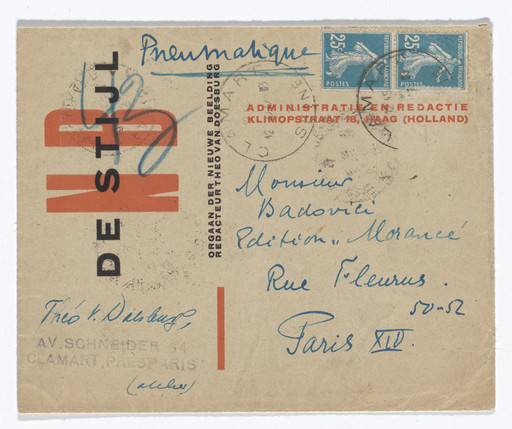 Pneumatique
25c 25c
POSTES POSTES
DE STIJL
NB
ORGAAN DER NIEUWE BEELDING
REDACTEUR THEO VAN DOESBURG
ADMINISTRATIE EN REDACTIE
KLIMOPSTRAAT 18, HAAG (HOLLAND)
CLAMART
SEINE
Monsieur
Badovici
Edition „ Morancé
Rue Fleurus.
50-52
Paris XIV.
Théo v. Doesburg,
AV. SCHNEIDER 64
CLAMART, PRES PARIS
(atelier)